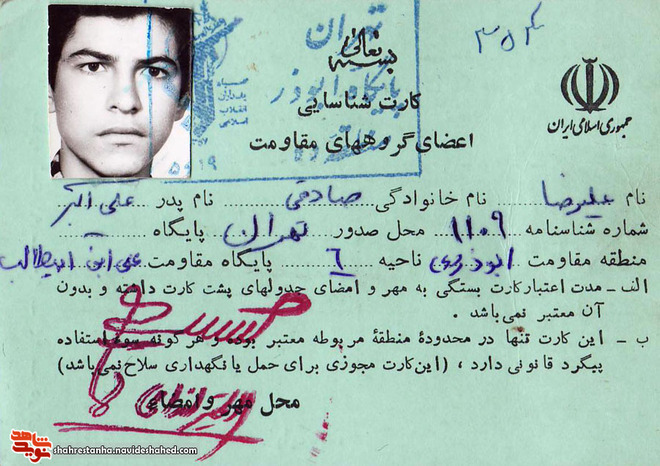 بسمه تعالی
جمهوری اسلامی ایران
کارت شناسایی
اعضای گروههای مقاومت
تهران
پایگاه ابوذر
سپاه پاسداران انقلاب اسلامی
نام علیرضا نام خانوادگی صادقی نام پدر علی اکبر
شماره شناسنامه ۱۱۰۹ محل صدور تهران پایگاه
منطقه مقاومت ابوذری ناحیه ۶ پایگاه مقاومت علی ابن ابیطالب
الف - مدت اعتبار کارت بستگی به مهر و امضای جدولهای پشت کارت داشته و بدون
آن معتبر نمی‌باشد .
ب - این کارت تنها در محدودهٔ منطقهٔ مربوطه معتبر بوده و هرگونه سوء استفاده
پیگرد قانونی دارد ، (این کارت مجوزی برای حمل یا نگهداری سلاح نمی‌باشد)
محل مهر و امضاء
نوید شاهد
shahrestanha.navideshahed.com